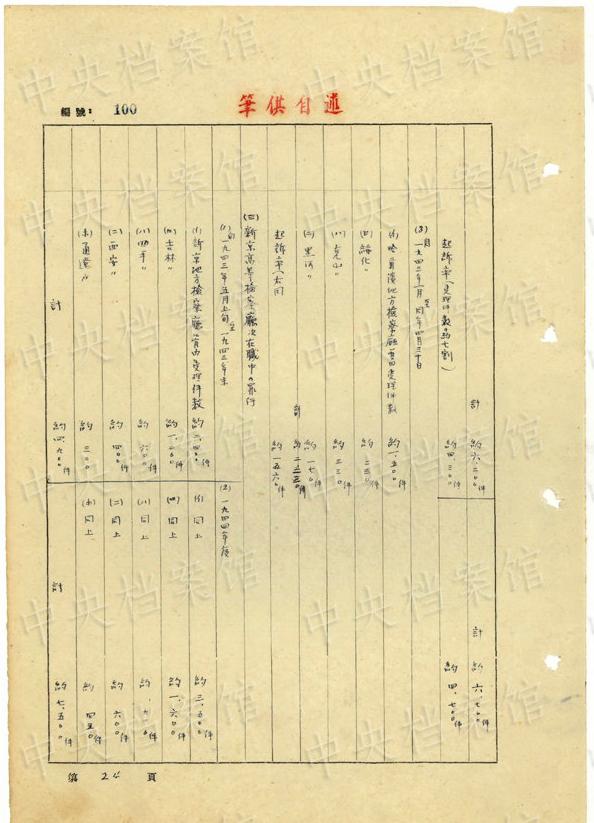 編號: 100
筆供自述
計 約 六、二〇〇件
計 約 六、七〇〇件
起訴率(受理件数ノ約七割)
約 四、三〇〇件
約 四、七〇〇件
(3) 自一九四三年一月 至同年四月三十日
(イ) 哈爾濱地方検察廳管内受理件数
約 一、五〇〇件
(ロ) 綏化〃
約 二三〇件
(ハ) 克山〃
約 三三〇件
(ニ) 黒河〃
約 一七〇件
計 約 二、二三〇件
起訴率右同
約 一五六〇件
(三) 新京高等検察廳次在職中ノ罪行
(1) 自一九四三年五月上旬 至一九四三年末
(2) 一九四四年度
(イ) 新京地方検察廳管内受理件数
約 二、四〇〇件
(イ) 同上
約 三、五〇〇件
(ロ) 吉林〃
約 一、一〇〇件
(ロ) 同上
約 一、六〇〇件
(ハ) 四平〃
約 六〇〇件
(ハ) 同上
(ニ) 西安〃
約 四〇〇件
(ニ) 同上
約 六〇〇件
(ホ) 通遼〃
約 三〇〇
(ホ) 同上
約 四五〇件
計
約 四、九〇〇件
計
約 七、五〇〇件
第 24 頁
中央档案馆